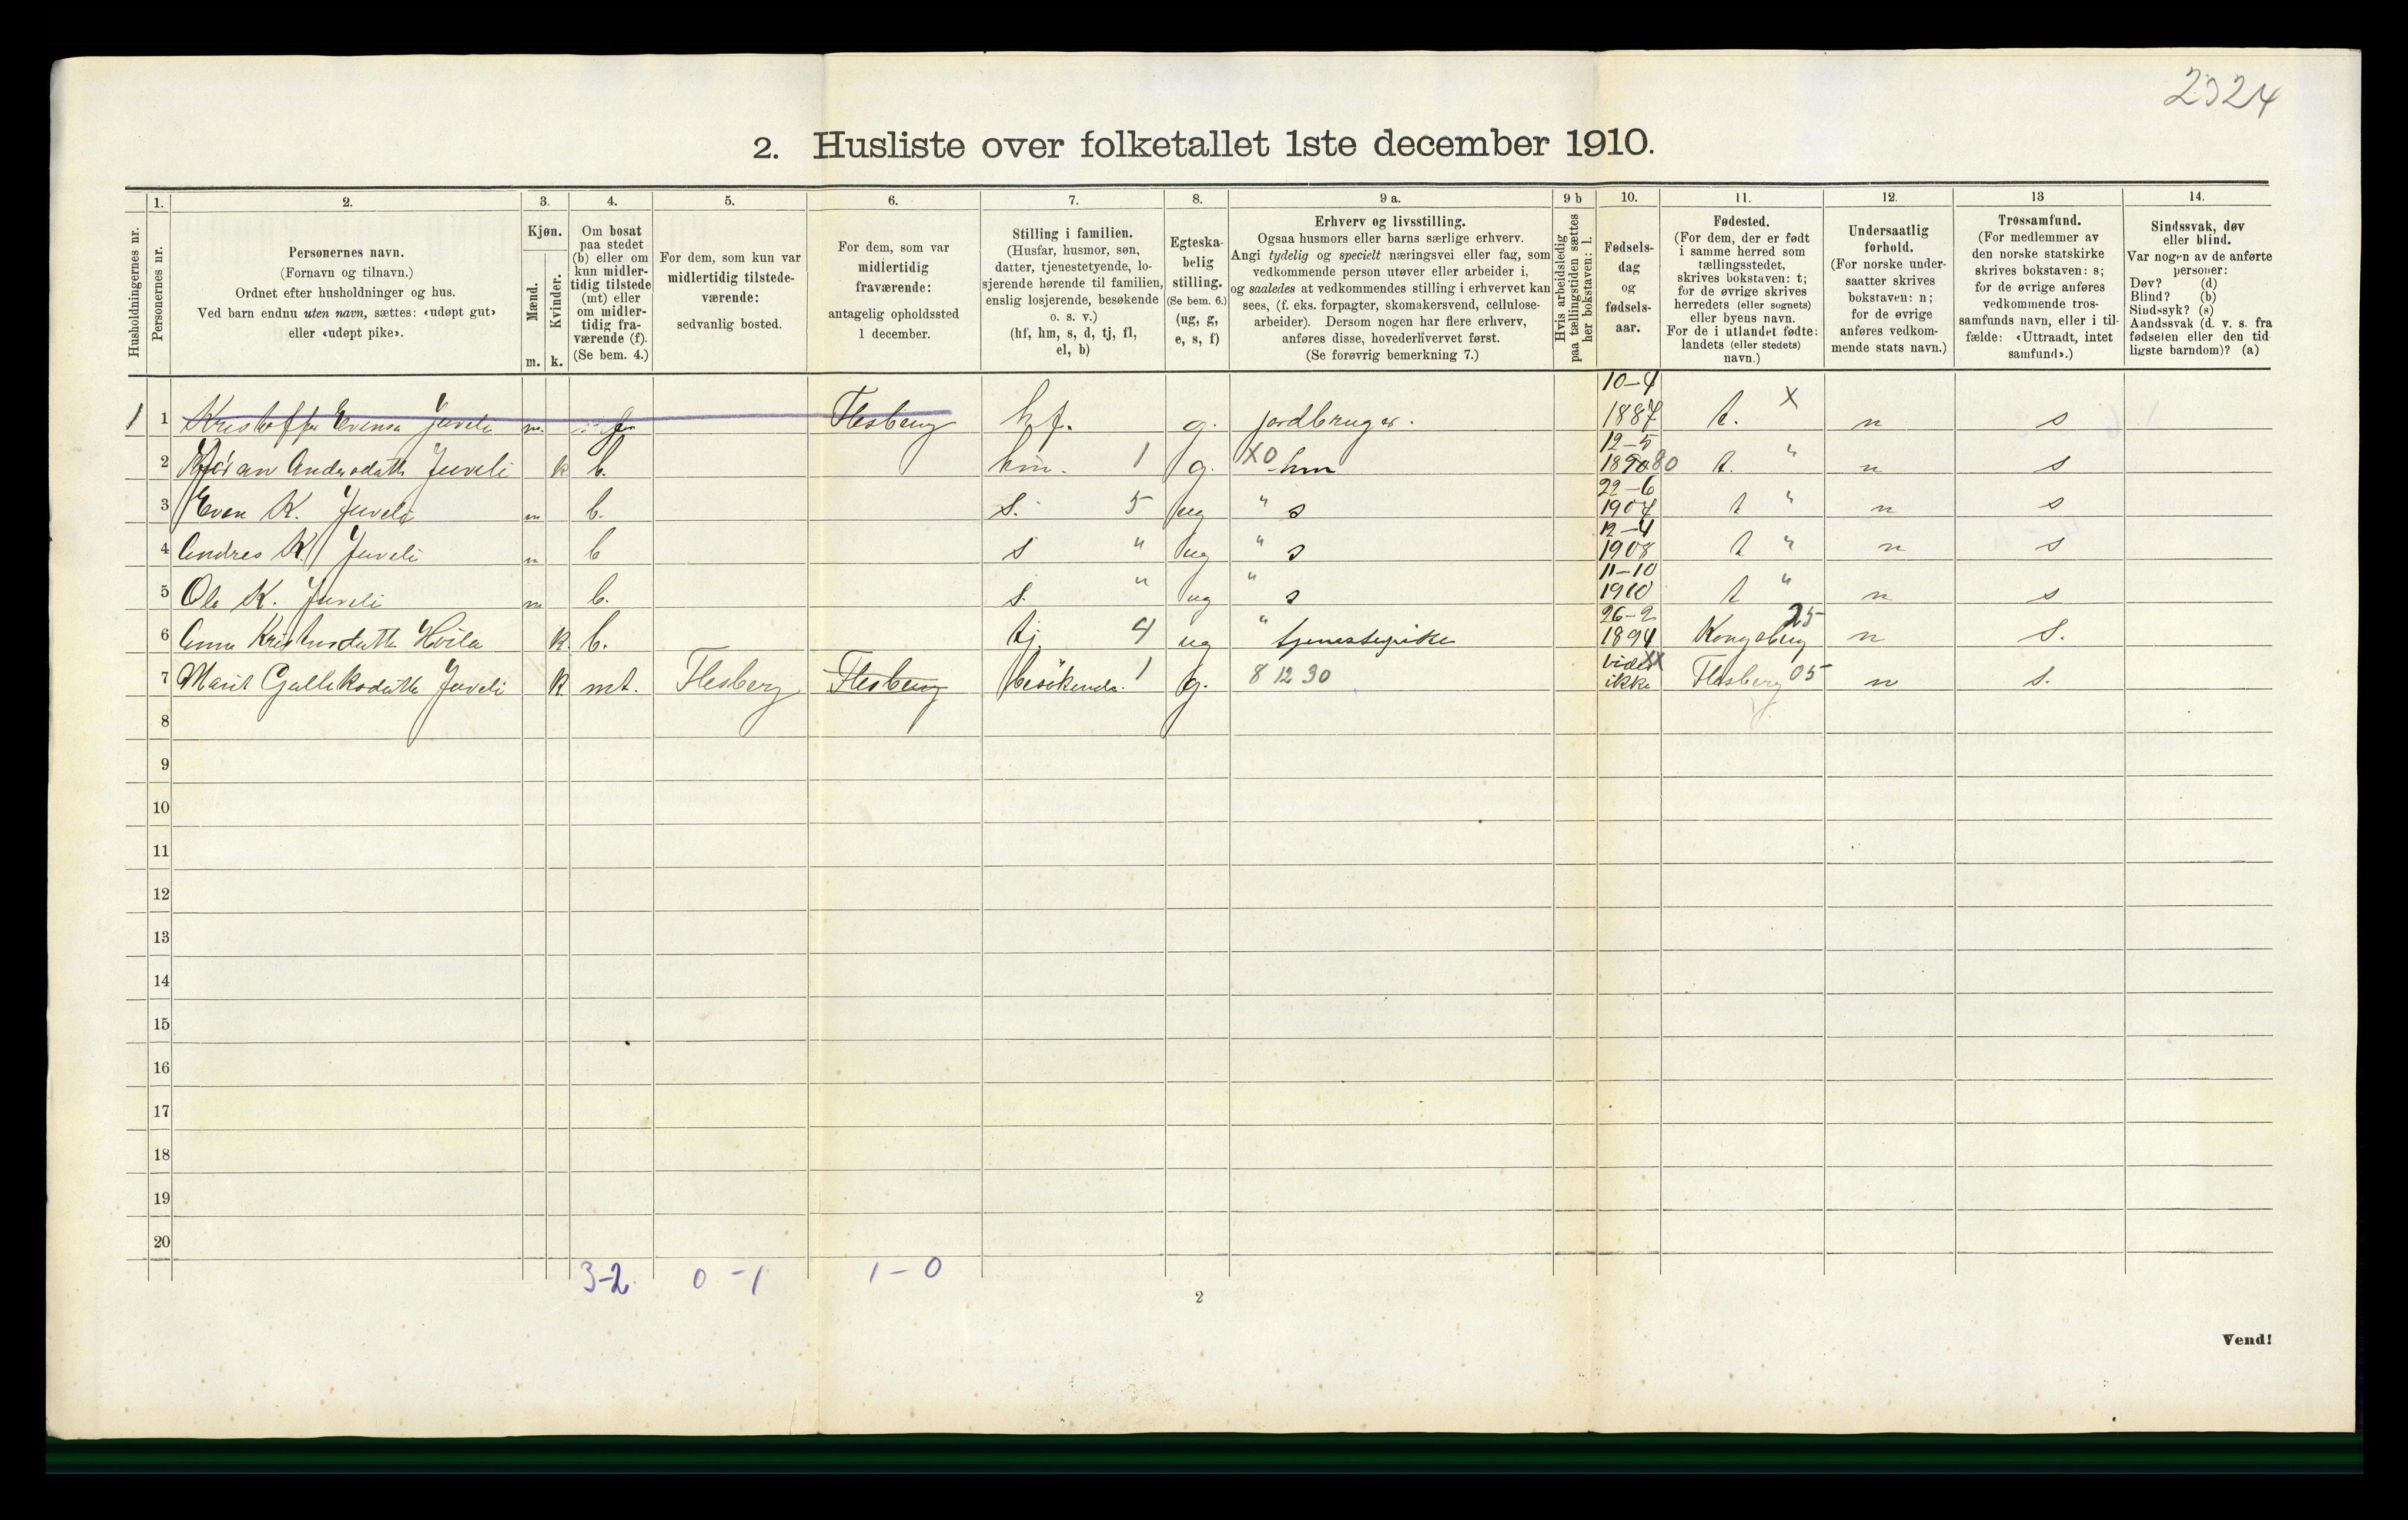 2324
2. Husliste over folketallet 1ste december 1910.
Husholdningernes nr.
1.
Personernes nr.
2.
Personernes navn.
(Fornavn og tilnavn.)
Ordnet efter husholdninger og hus.
Ved barn endnu uten navn, sættes: «udøpt gut»
eller «udøpt pike».
3.
Kjøn.
Mænd.
Kvinder.
m. k.
4.
Om bosat
paa stedet
(b) eller om
kun midler-
tidig tilstede
(mt) eller
om midler-
tidig fra-
værende (f).
(Se bem. 4.)
5.
For dem, som kun var
midlertidig tilstede-
værende:
sedvanlig bosted.
6.
For dem, som var
midlertidig
fraværende:
antagelig opholdssted
1 december.
7.
Stilling i familien.
(Husfar, husmor, søn,
datter, tjenestetyende, lo-
sjerende hørende til familien,
enslig losjerende, besøkende
o. s. v.)
(hf, hm, s, d, tj, fl,
el, b)
8.
Egteska-
belig
stilling.
(Se bem. 6.)
(ug, g,
e, s, f)
9 a.
Erhverv og livsstilling.
Ogsaa husmors eller barns særlige erhverv.
Angi tydelig og specielt næringsvei eller fag, som
vedkommende person utøver eller arbeider i,
og saaledes at vedkommendes stilling i erhvervet kan
sees, (f. eks. forpagter, skomakersvend, cellulose-
arbeider). Dersom nogen har flere erhverv,
anføres disse, hovederhvervet først.
(Se forøvrig bemerkning 7.)
9 b
Hvis arbeidsledig
paa tællingstiden sættes
her bokstaven: l.
10.
Fødsels-
dag
og
fødsels-
aar.
11.
Fødested.
(For dem, der er født
i samme herred som
tællingsstedet,
skrives bokstaven: t;
for de øvrige skrives
herredets (eller sognets)
eller byens navn.
For de i utlandet fødte:
landets (eller stedets)
navn.)
12.
Undersaatlig
forhold.
(For norske under-
saatter skrives
bokstaven: n;
for de øvrige
anføres vedkom-
mende stats navn.)
13
Trossamfund.
(For medlemmer av
den norske statskirke
skrives bokstaven: s;
for de øvrige anføres
vedkommende tros-
samfunds navn, eller i til-
fælde: «Uttraadt, intet
samfund».)
14.
Sindssvak, døv
eller blind.
Var nogen av de anførte
personer:
Døv? (d)
Blind? (b)
Sindssyk? (s)
Aandssvak (d. v. s. fra
fødselen eller den tid-
ligste barndom)? (a)
1 1 Kristoffer Evensen Juveli m. f. Flesberg hf. g. jordbruger. 10-4 1887 t. X n s
2 Andersdatte Juveli k b. hm. 1 g. X0 hm 12-5 1890 80 t. " n s
3 Even K. Juveli m b. s. 5 ug " s 22-6 1907 t " n s
4 Andres K. Juveli m b s " ug " s 12-4 1908 t " n s
5 Ole K. Juveli m b. s. " ug " s 11-10 1910 t " n s
6 Anna Hvila k. b. tj. 4 ug " tjenestepike 26-2 1894 Kongsberg 25 n s.
7 Marit Gulleksdatte Juveli k mt. Flesberg Flesberg besökende. 1 g. 8 12 30 vides ikke XX Flesberg 05 n s.
8
9
10
11
12
13
14
15
16
17
18
19
20
3-2. 0-1 1-0
2
Vend!